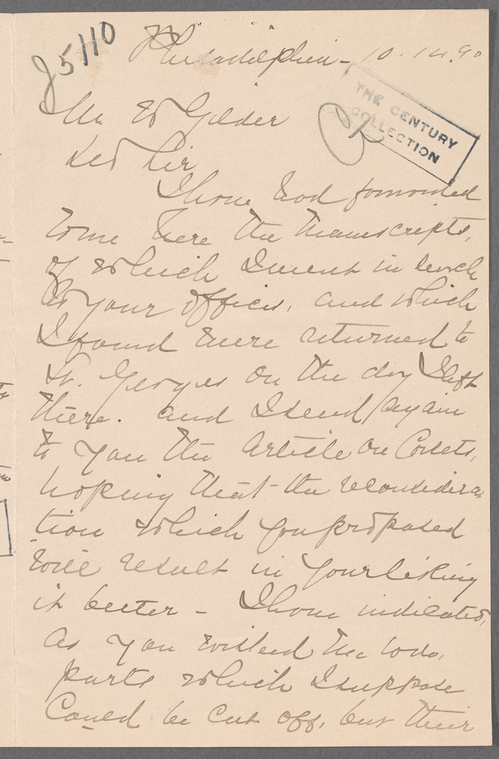 J5110
Philadelphia - 10.14.90
THE CENTURY
COLLECTION
Mr Ed Gilder
Dear Sir
I have had forwarded
to me here the Manuscripts,
of which I went in search
to your offices, and which
I found were returned to
St. Georges on the day I left
there. and I send again
to you the article on Cadets,
hoping that the reconsidera
tion which you proposed
will result in your liking
it better - I have indicated,
as you wished me to do,
parts which I suppose
could be cut off, but their